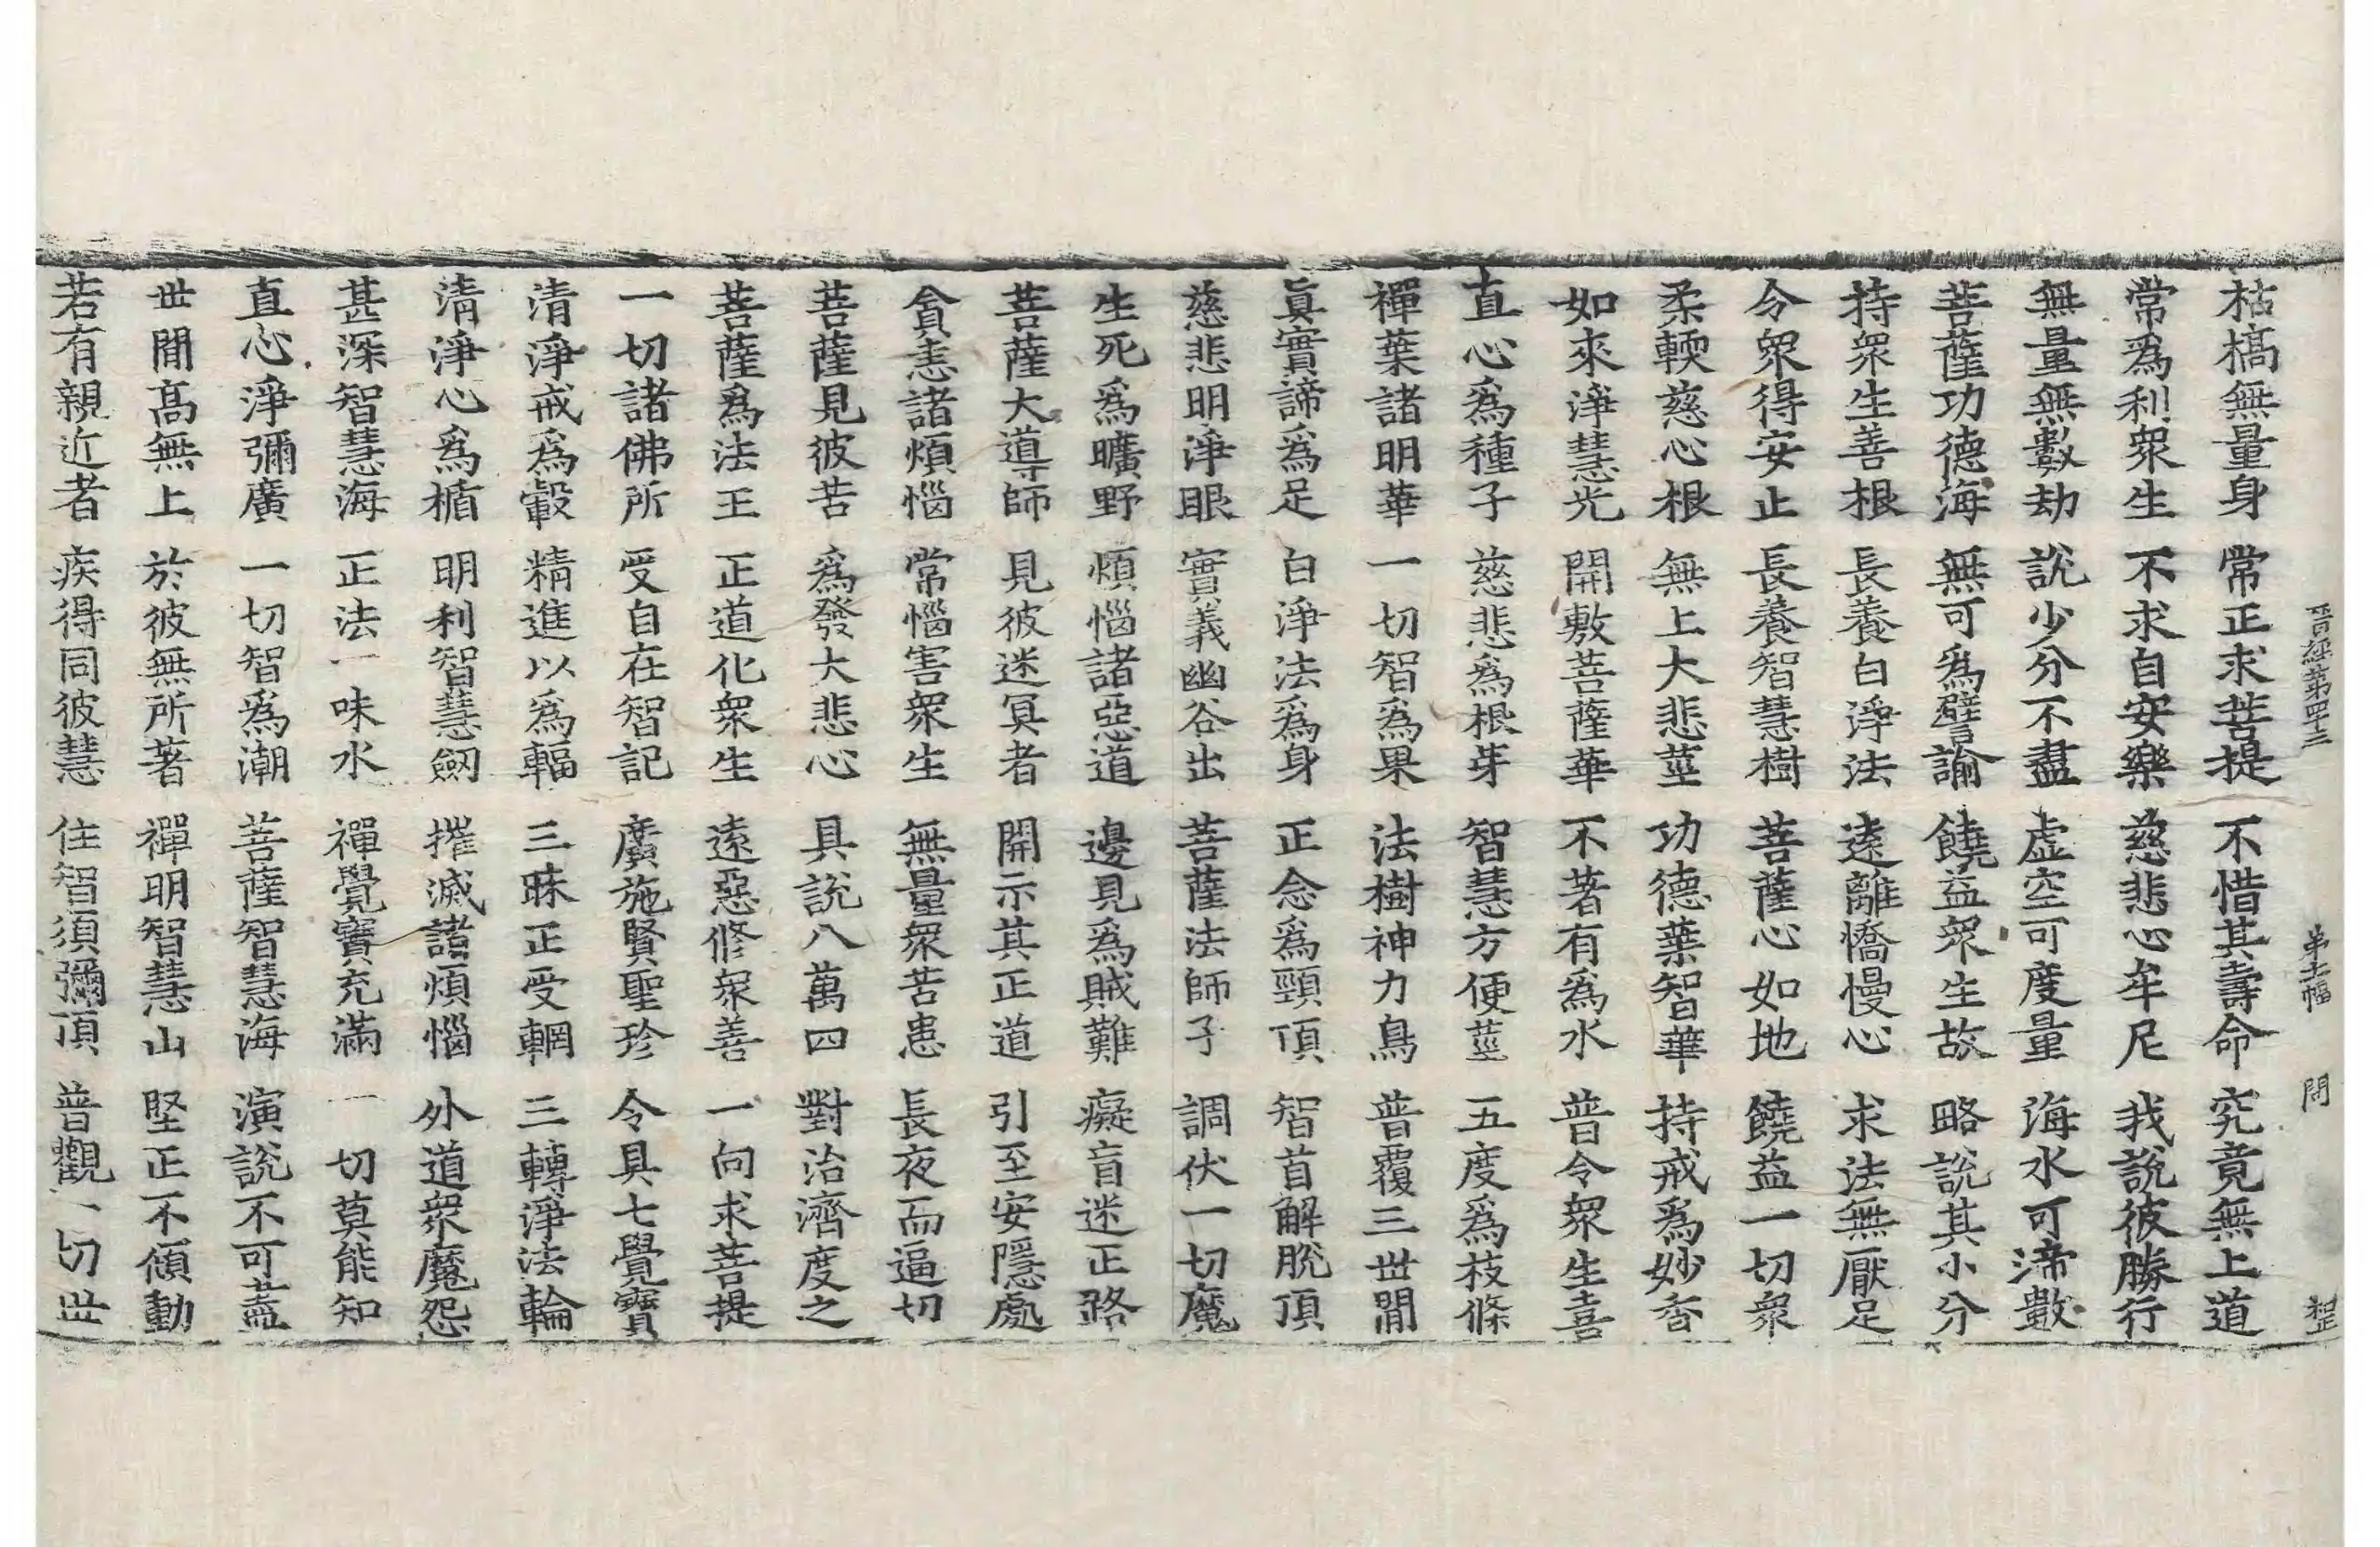 晋經第四十三 第十二幅 問 㘴
枯槁無量身 常正求菩提 不惜其壽命 究竟無上道
常爲利衆生 不求自安樂 慈悲心牟尼 我說彼勝行
無量無數劫 說少分不盡 虛空可度量 海水可渧數
菩薩功德海 無可爲譬諭 饒益衆生故 略說其小分
持衆生善根 長養白淨法 遠離憍慢心 求法無厭足
令衆得安止 長養智慧樹 菩薩心如地 饒益一切衆
柔輭慈心根 無上大悲莖 功德葉智華 持戒爲妙香
如來淨慧光 開敷菩薩華 不著有爲水 普令衆生喜
直心爲種子 慈悲爲根芽 智慧方便莖 五度爲枝條
禪葉諸明華 一切智爲果 法樹神力鳥 普覆三世閒
眞實諦爲足 白淨法爲身 正念爲頸頂 智首解脫頂
慈悲明淨眼 實義幽谷出 菩薩法師子 調伏一切魔
生死爲曠野 煩惱諸惡道 邊見爲賊難 癡盲迷正路
菩薩大導師 見彼迷冥者 開示其正道 引至安隱處
貪恚諸煩惱 常惱害衆生 無量衆苦患 長夜而逼切
菩薩見彼苦 爲發大悲心 具說八萬四 對治濟度之
菩薩爲法王 正道化衆生 遠惡修衆善 一向求菩提
一切諸佛所 受自在智記 廣施賢聖珍 令具七覺寶
清淨戒爲轂 精進以爲輻 三昧正受輞 三轉淨法輪
清淨心爲楯 明利智慧劒 摧滅諸煩惱 外道衆魔怨
甚深智慧海 正法一味水 禪覺寶充滿 一切莫能知
直心淨彌廣 一切智爲潮 菩薩智慧海 演說不可盡
世閒高無上 於彼無所著 禪明智慧山 堅正不傾動
若有親近者 疾得同彼慧 住智須彌頂 普觀一切世